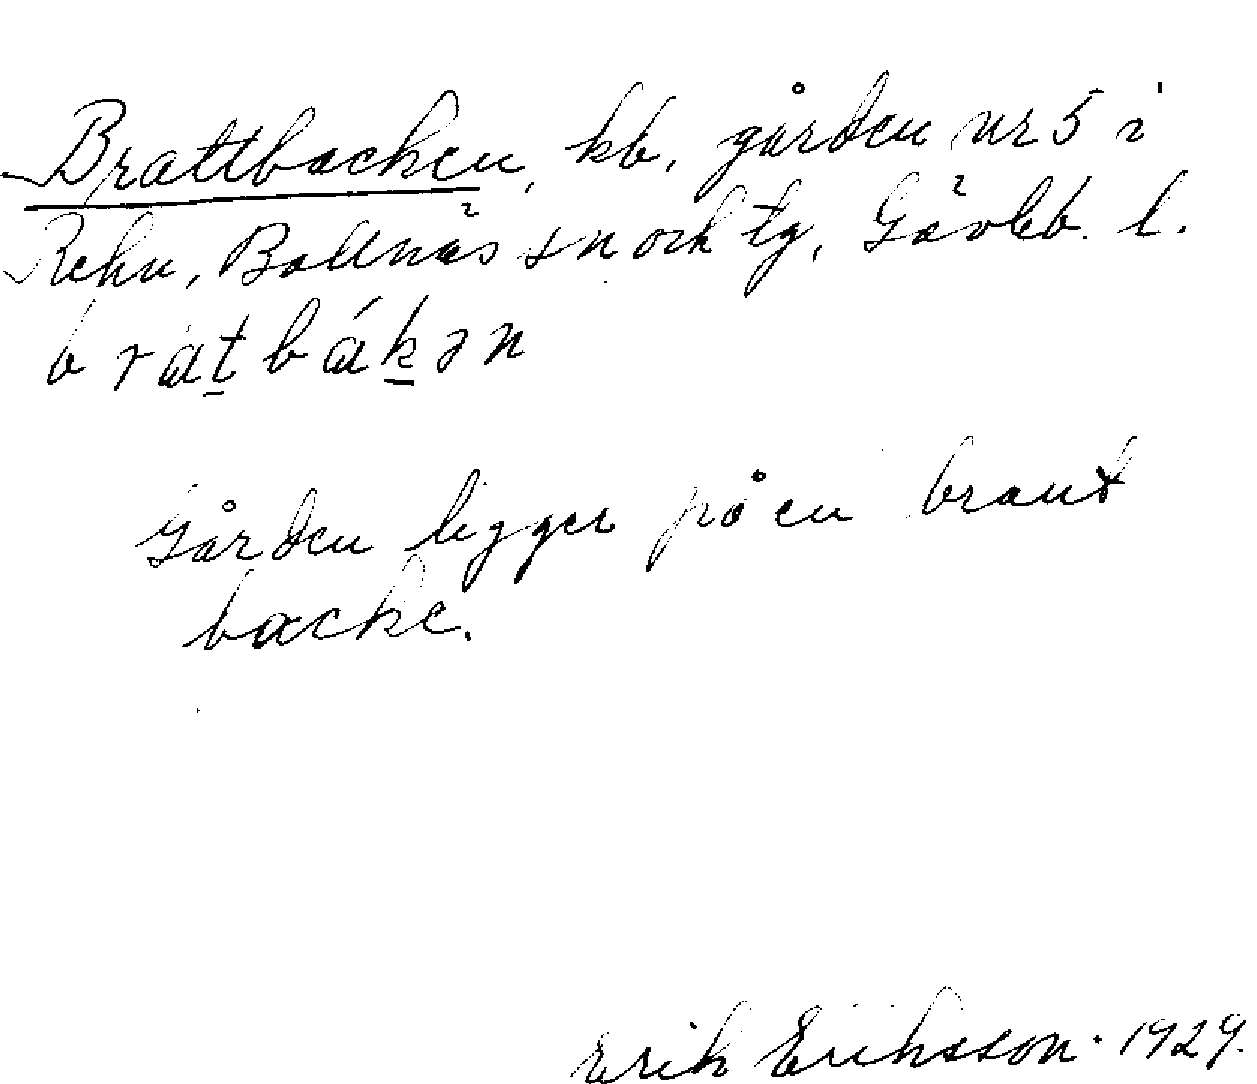 Brattbacken, kb, gården nr 5 i
Rehn, Bollnäs sn och tg, Gävleb. l.
bràt̠bák̠ən
Gården ligger på en brant
backe.
Erik Eriksson. 1929.